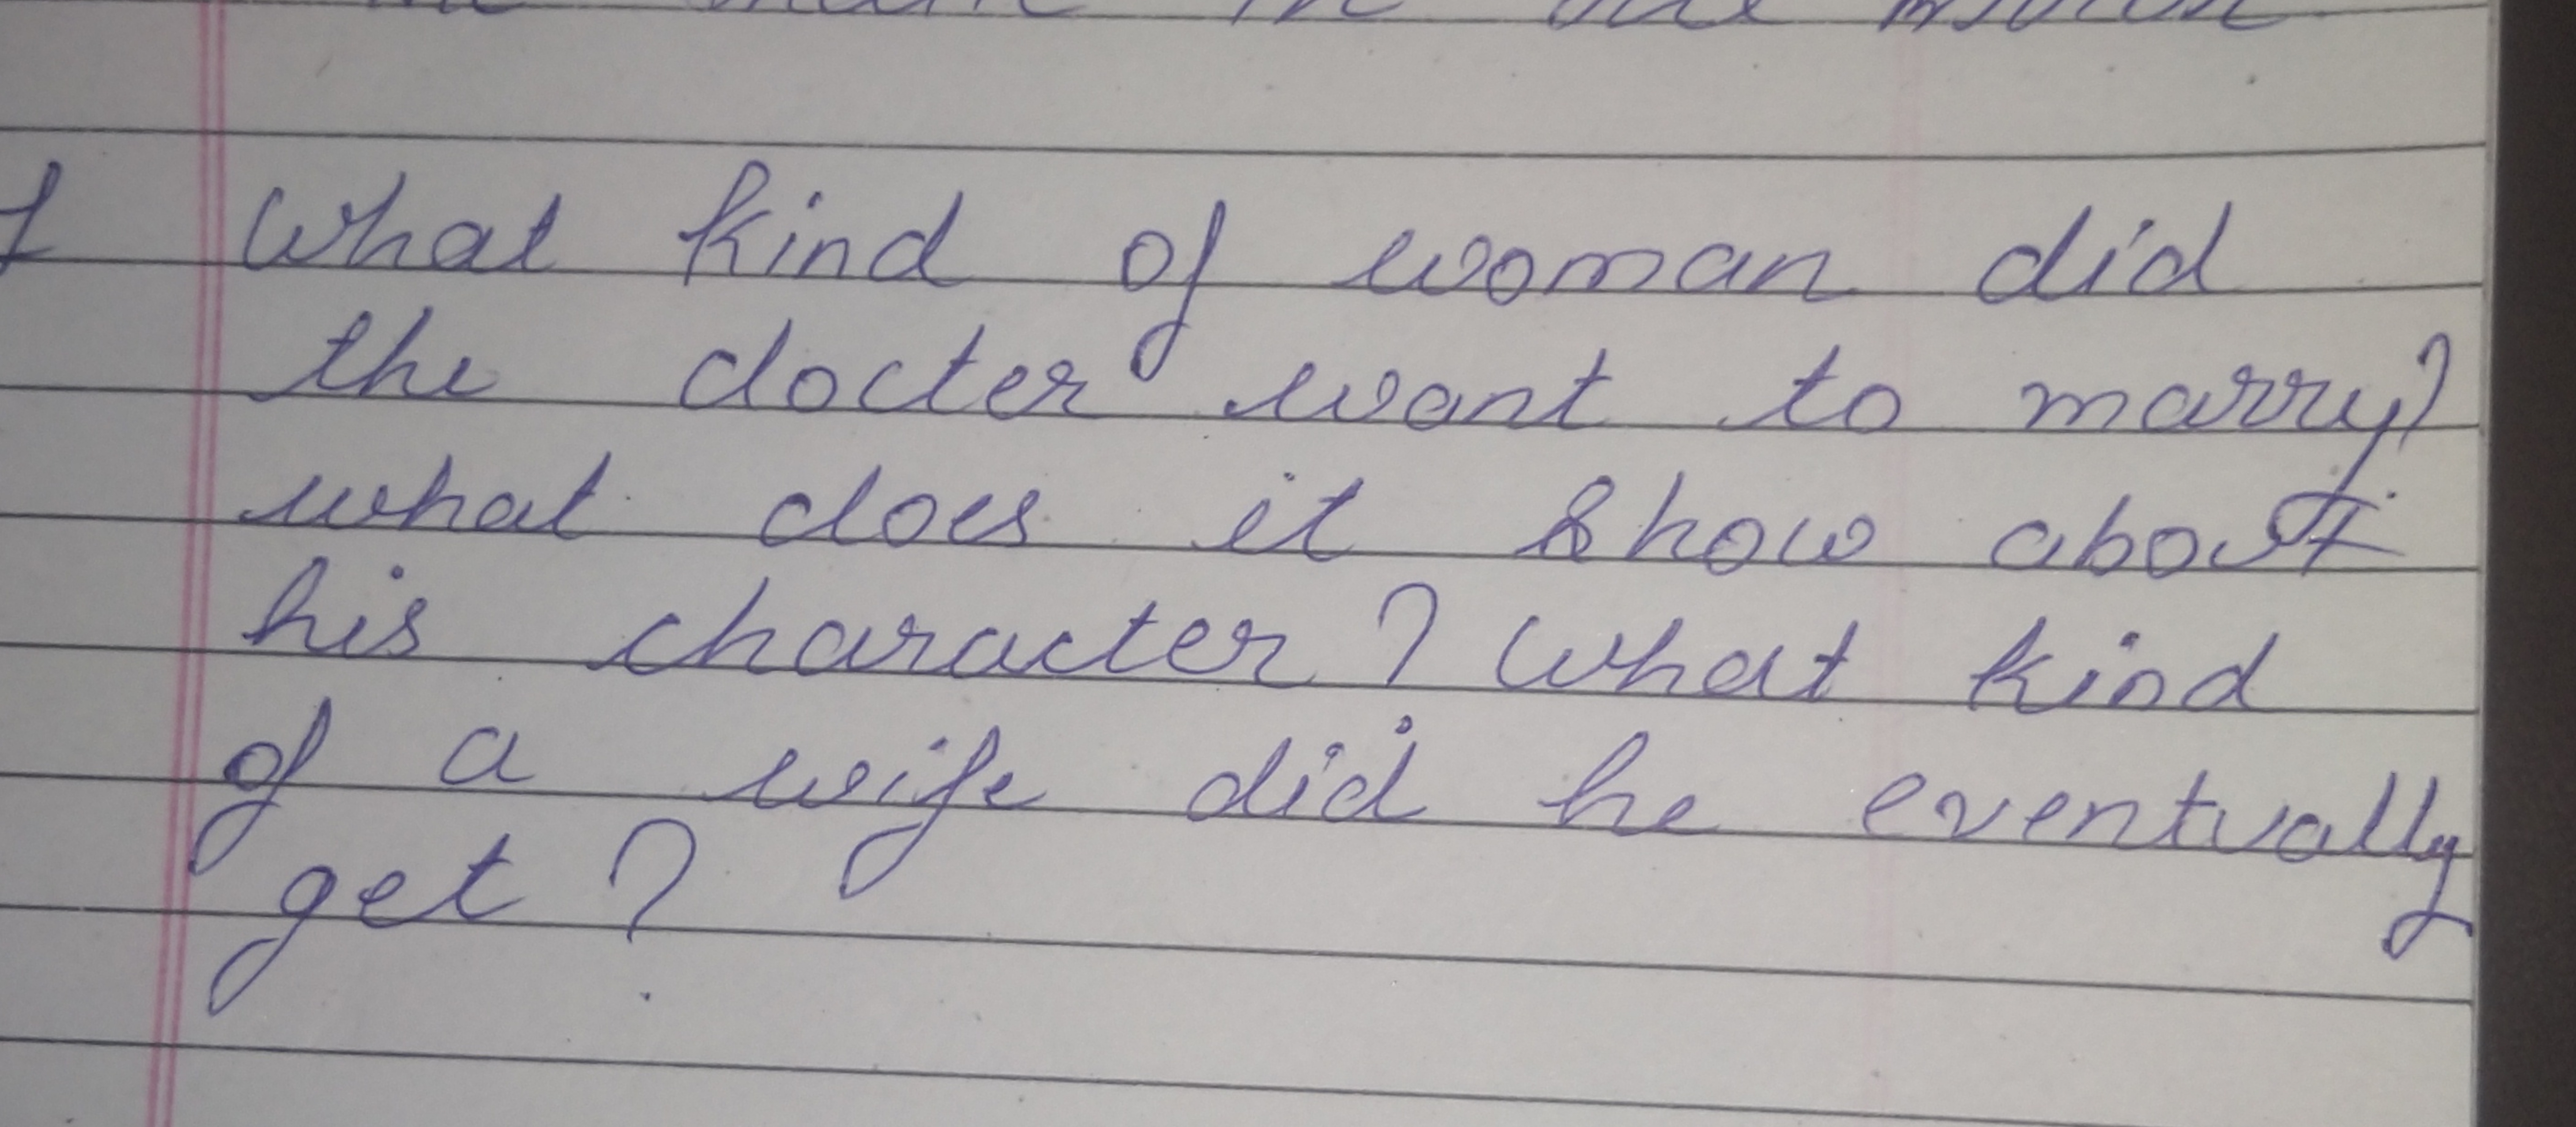 1 What kind of woman did
the docter want to marry?
what does it show about
his character? What kind
of a wife did he eventually
get?